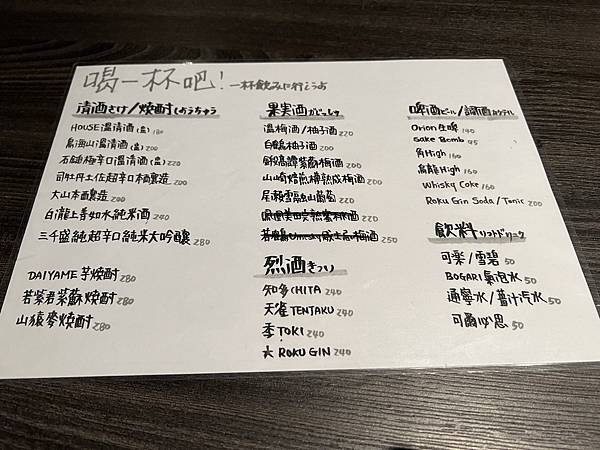 喝一杯吧! 一杯飲みに行こうよ
清酒さけ/燒酎しょうちゅう
HOUSE溫清酒(壺) 180
鳥海山溫清酒(壺) 200
石鎚極辛口溫清酒(壺) 220
司牡丹土佐超辛口本釀造 200
大山本釀造 200
白瀧上善如水純米酒 240
三千盛純超辛口純米大吟釀 280
DAIYAME芋燒酎 280
若紫君紫蘇燒酎 280
山猿麥燒酎 280
果実酒かじっしゅ
溫梅酒/柚子酒 220
白鶴柚子酒 200
紫蘇梅酒 200
山崎焙煎樽熟成梅酒 200
尾瀬雪融山葡萄 220
梅酒 250
烈酒きつい
知多CHITA 240
天雀TENJAKU 240
季TOKI 240
六ROKU GIN 240
啤酒ビール/調酒カクテル
Orion生啤 140
Sake Bomb 95
角High 160
烏龍High 160
Whisky Coke 160
Roku Gin Soda/Tonic 200
飲料ソフトドリンク
可樂/雪碧 50
BOGARI氣泡水 50
通寧水/薑汁汽水 50
可爾必思 50